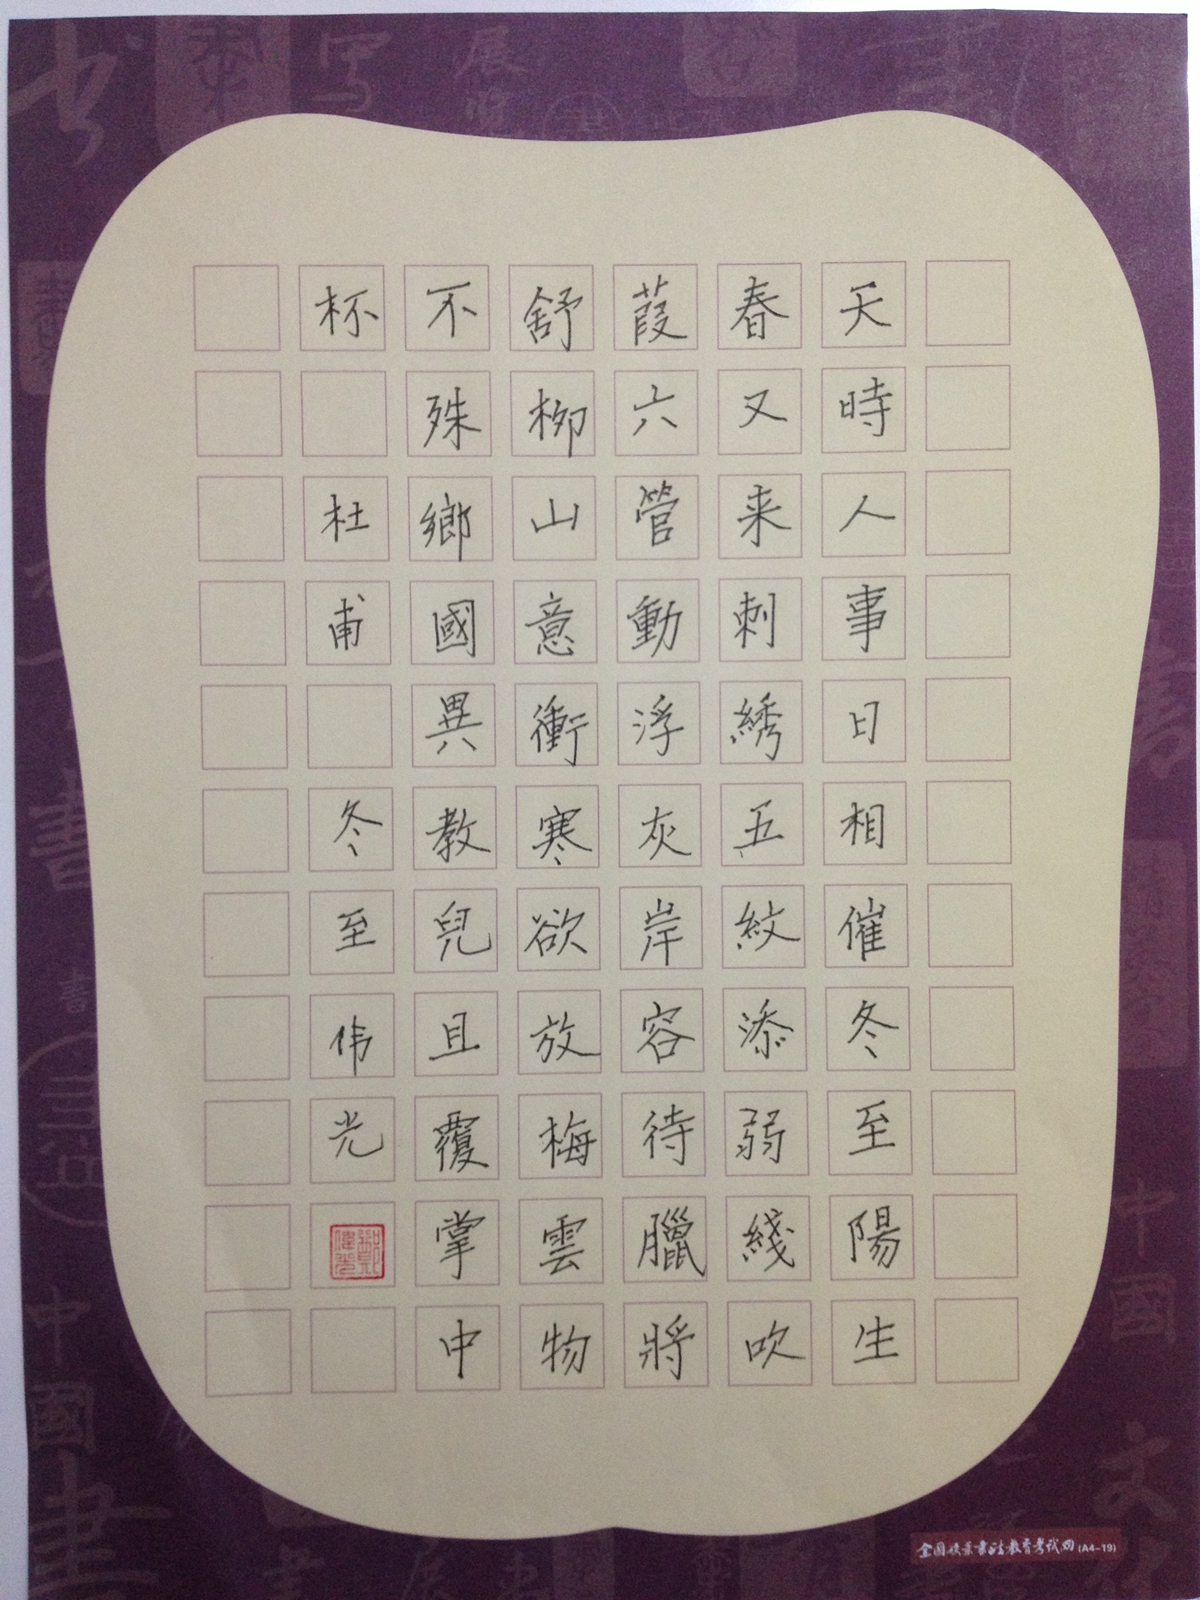 天時人事日相催冬至陽生
春又来刺綉五紋添弱綫吹
葭六管動浮灰岸容待臘將
舒柳山意衝寒欲放梅雲物
不殊鄉國異教兒且覆掌中
杯 杜甫 冬至 伟光
(A4-19)